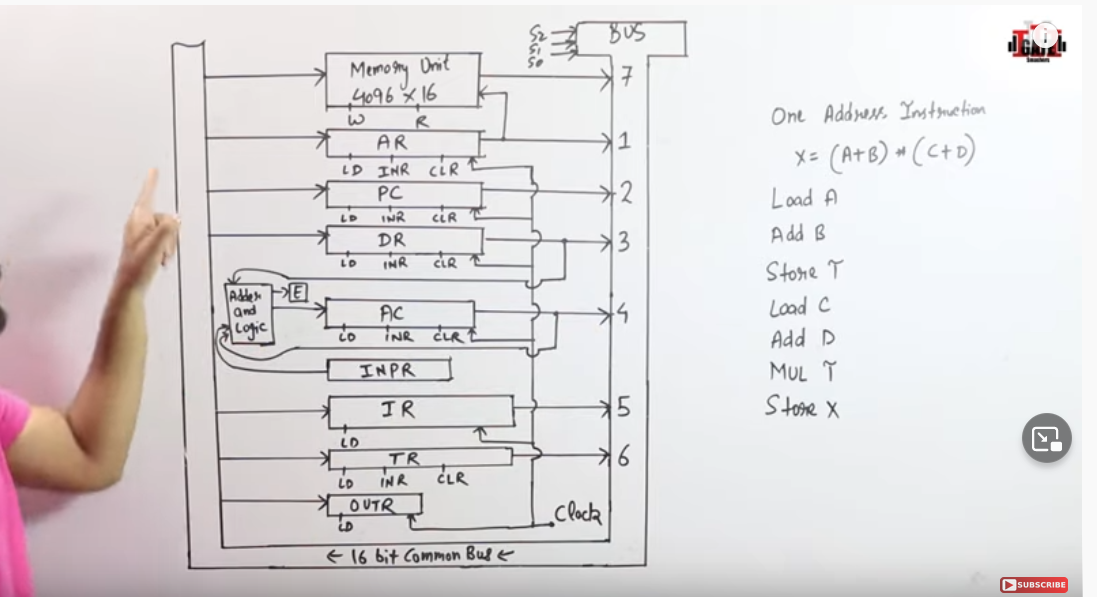 S2
S1
S0
BUS
Memory Unit
4096 X 16
W R
7
AR
LD INR CLR
1
PC
LD INR CLR
2
DR
LD INR CLR
3
Adder
and
Logic
E
AC
LD INR CLR
4
INPR
IR
LD
5
TR
LD INR CLR
6
OUTR
LD
Clock
← 16 bit Common Bus ←
One Address Instruction
X= (A+B) * (C+D)
Load A
Add B
Store T
Load C
Add D
MUL T
Store X
GATE
Smashers
SUBSCRIBE